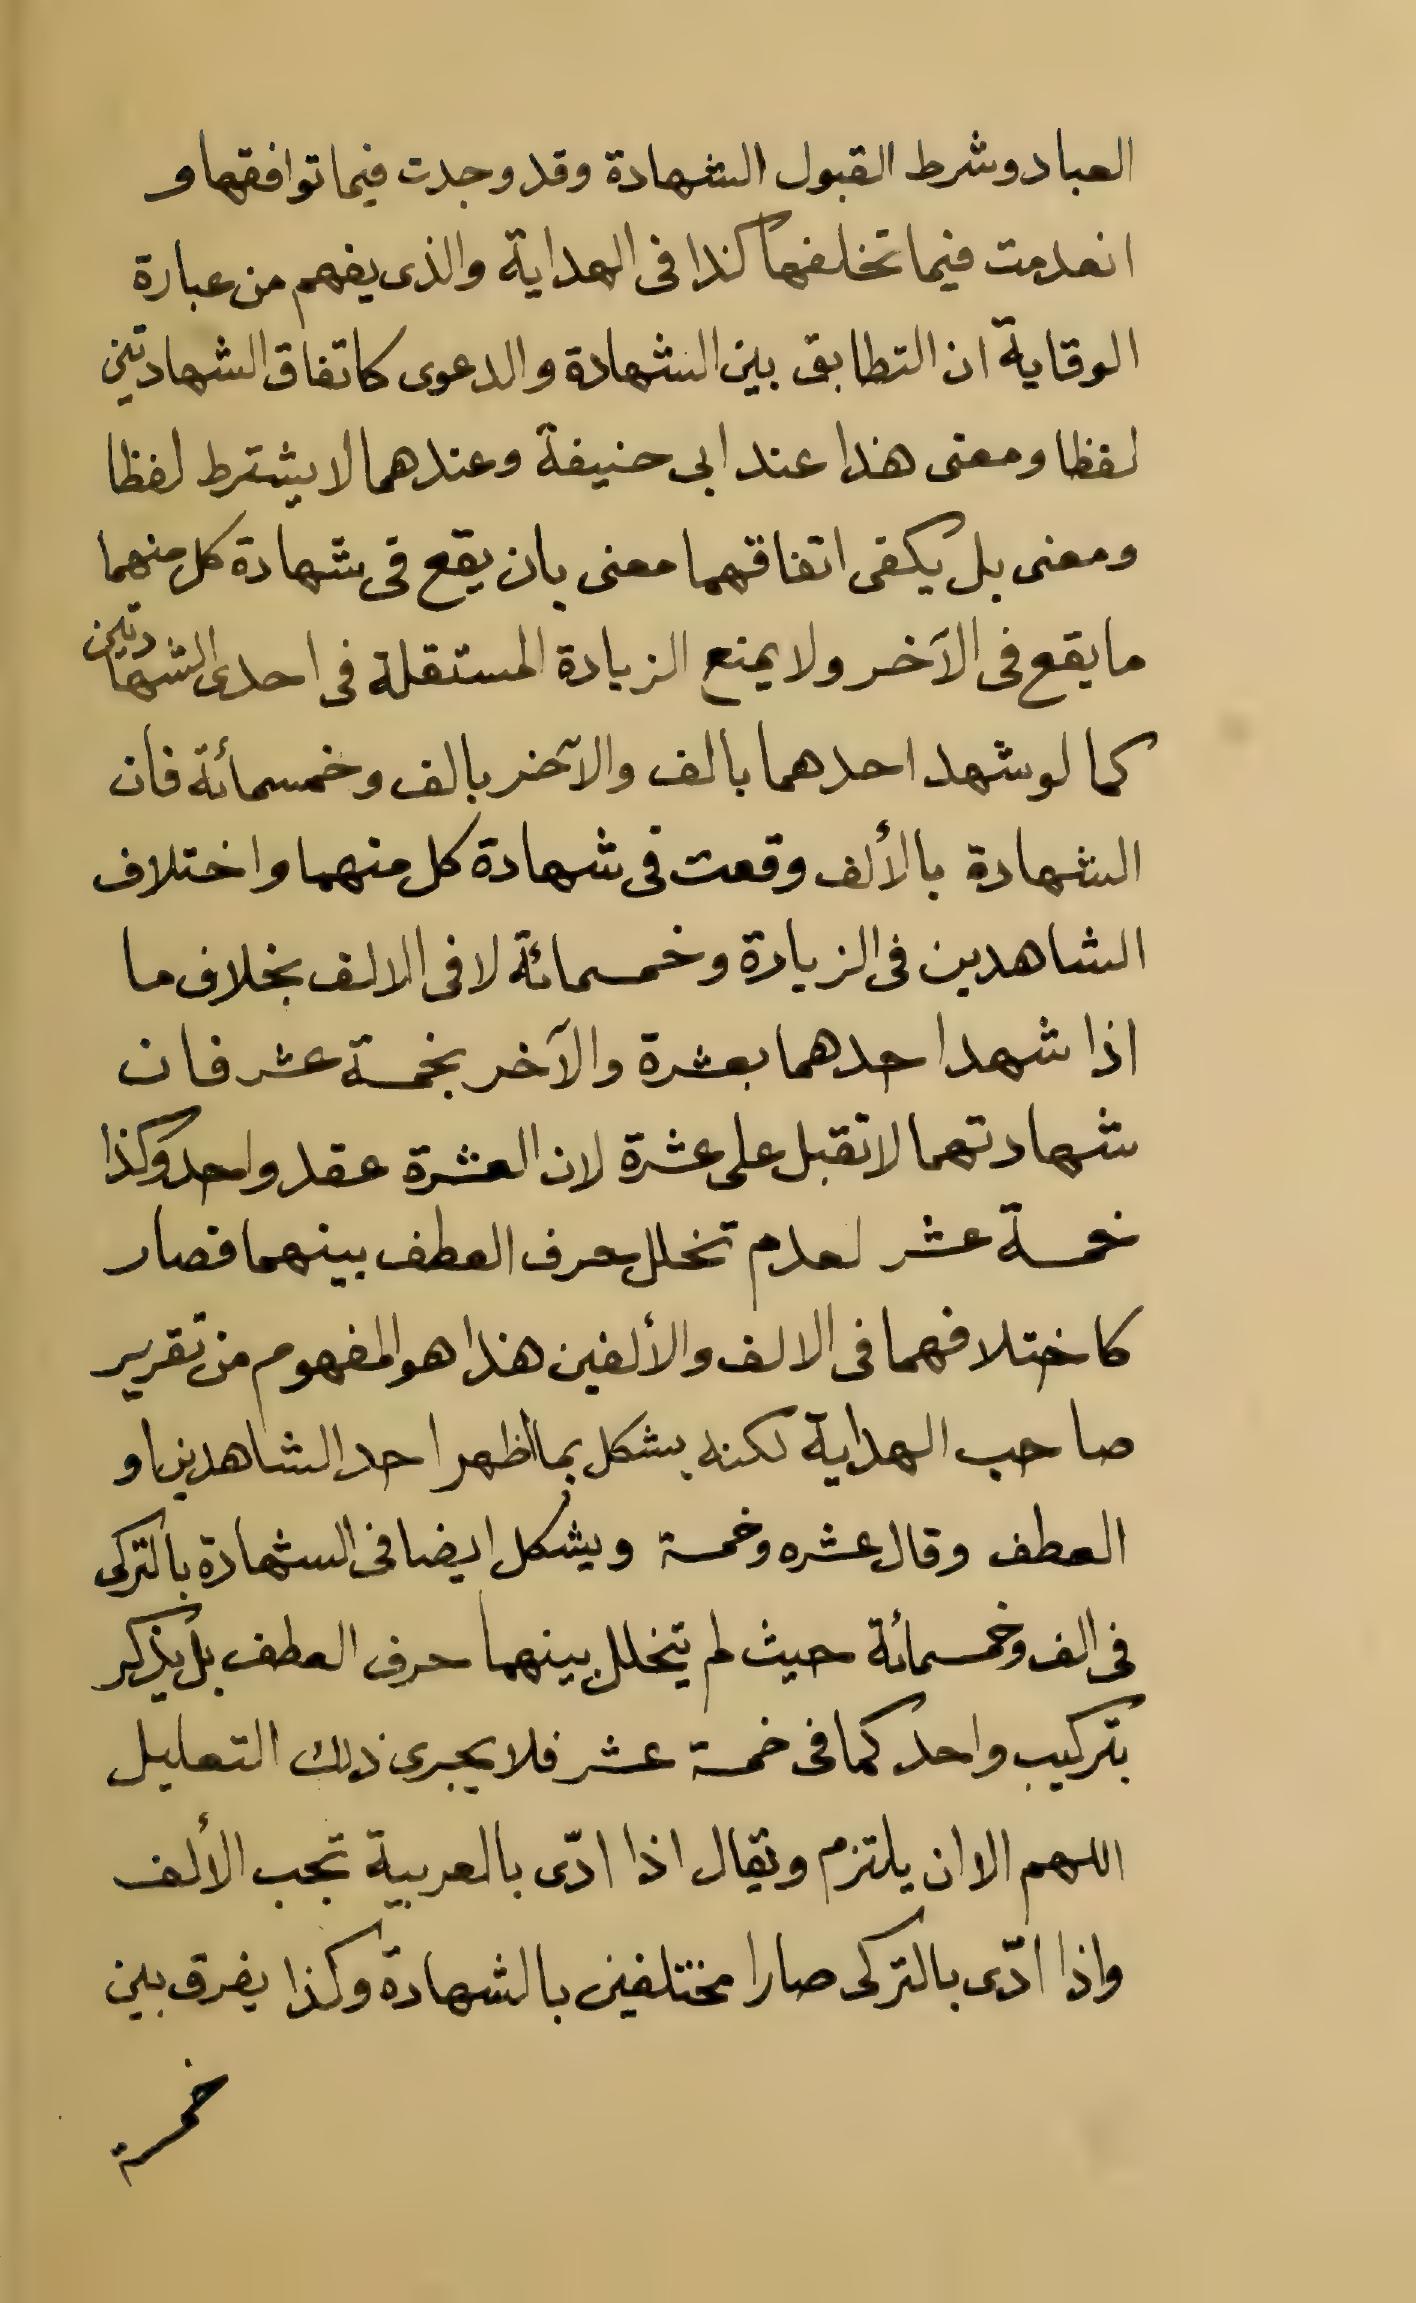 العباد وشرط القبول الشهادة وقد وجدت فيما توافقها و
انعدمت فيما تخلفها كذا فى الهداية والذى يفهم من عبارة
الوقاية ان التطابق بين الشهادة والدعوى كاتفاق الشهادتين
لفظا ومعنى هذا عند ابى حنيفة وعندهما لا يشترط لفظا
ومعنى بل يكفى اتفاقهما معنى بان يقع فى شهادة كل منهما
ما يقع فى الآخر ولا يمنع الزيادة المستقلة فى احدى الشهادتين
كما لو شهد احدهما بالف والآخر بالف وخمسمائة فان
الشهادة بالألف وقعت فى شهادة كل منهما واختلاف
الشاهدين فى الزيادة وخمسمائة لا فى الالف بخلاف ما
اذا شهد احدهما بعشرة والآخر بخمسة عشر فان
شهادتهما لا تقبل على عشرة لان العشرة عقد واحد وكذا
خمسة عشر لعدم تخلل حرف العطف بينهما فصار
كاختلافهما فى الالف والألفين هذا هو المفهوم من تقرير
صاحب الهداية لكنه يشكل بما اظهر احد الشاهدين او
العطف وقال عشره وخمسة ويشكل ايضا فى الشهادة بالتركى
فى الف وخمسمائة حيث لم يتخلل بينهما حرف العطف بل يذكر
بتركيب واحد كما فى خمسة عشر فلا يجرى ذلك التعليل
اللهم الا ان يلتزم ويقال اذا ادّى بالعربية تجب الألف
واذا ادّى بالتركى صارا مختلفين بالشهادة وكذا يفرق بين
خمسة